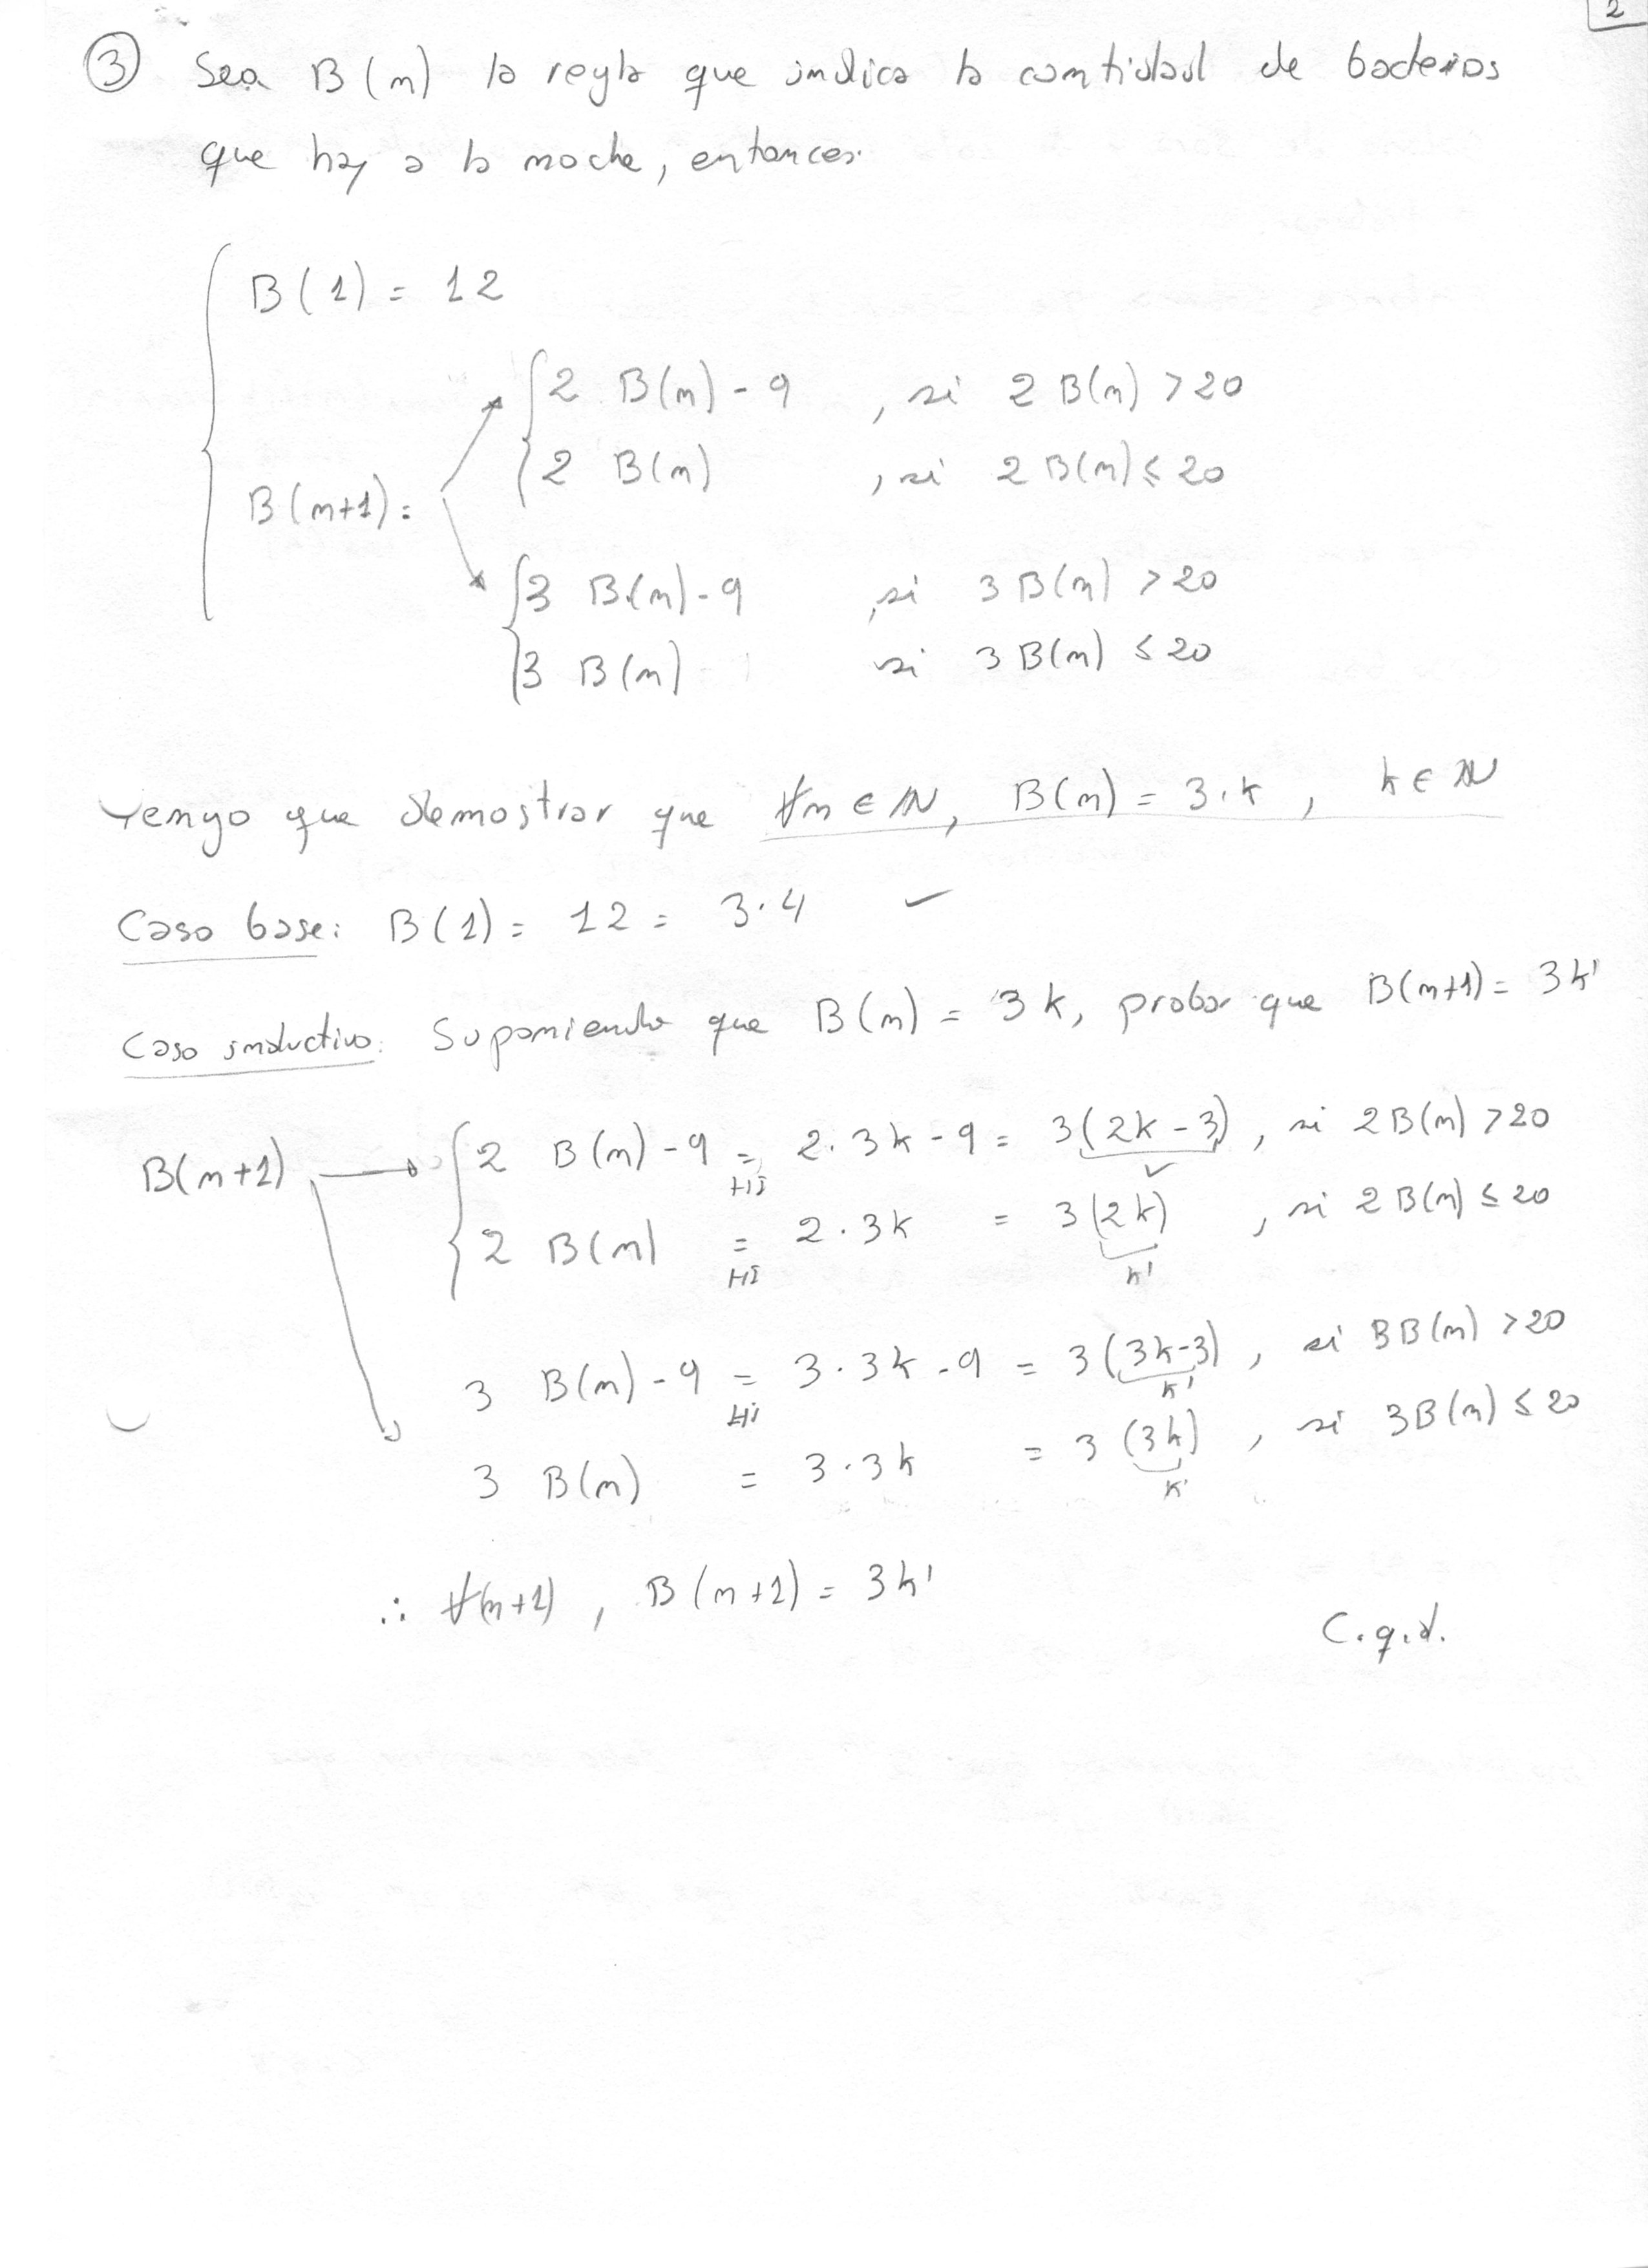 2
③ Sea B(n) la regla que indica la cantidad de bacterias
que hay a la noche, entonces.
B(1) = 12
2 B(n) - 9 , si 2 B(n) > 20
2 B(n) , si 2 B(n) ≤ 20
B(n+1) =
3 B(n) - 9 , si 3 B(n) > 20
3 B(n) si 3 B(n) ≤ 20
Tengo que demostrar que ∀n ∈ ℕ, B(n) = 3.k , k ∈ ℕ
Caso base: B(1) = 12 = 3.4 ✓
Caso inductivo: Suponiendo que B(n) = 3k, probar que B(n+1) = 3k'
B(n+1) → 2 B(n) - 9 = 2.3k - 9 = 3(2k - 3) , si 2B(n) > 20
HI ✓
2 B(n) = 2.3k = 3(2k) , si 2 B(n) ≤ 20
HI k'
3 B(n) - 9 = 3.3k - 9 = 3(3k-3) , si 3B(n) > 20
HI k'
3 B(n) = 3.3k = 3(3k) , si 3B(n) ≤ 20
k'
∴ ∀(n+1) , B(n+1) = 3k'
C.q.d.